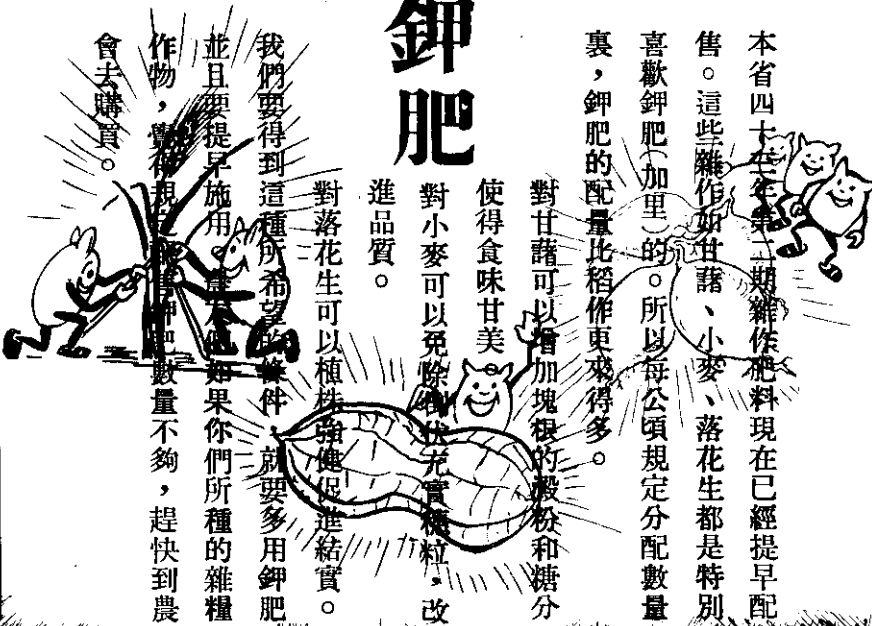 鉀肥
本省四十五年第二期雜作肥料現在已經提早配
售。這些雜作如甘藷、小麥、落花生都是特別
喜歡鉀肥(加里)的。所以每公頃規定分配數量
裏,鉀肥的配量比稻作更來得多。
對甘藷可以增加塊根的澱粉和糖分
使得食味甘美
對小麥可以免除倒伏充實 粒,改
進品質。
對落花生可以植株強健促進結實。
我們要得到這種所希望的條件,就要多用鉀肥
並且要提早施用。 如果你們所種的雜糧
作物,覺得規定 售鉀肥數量不夠,趕快到農
會去購買。